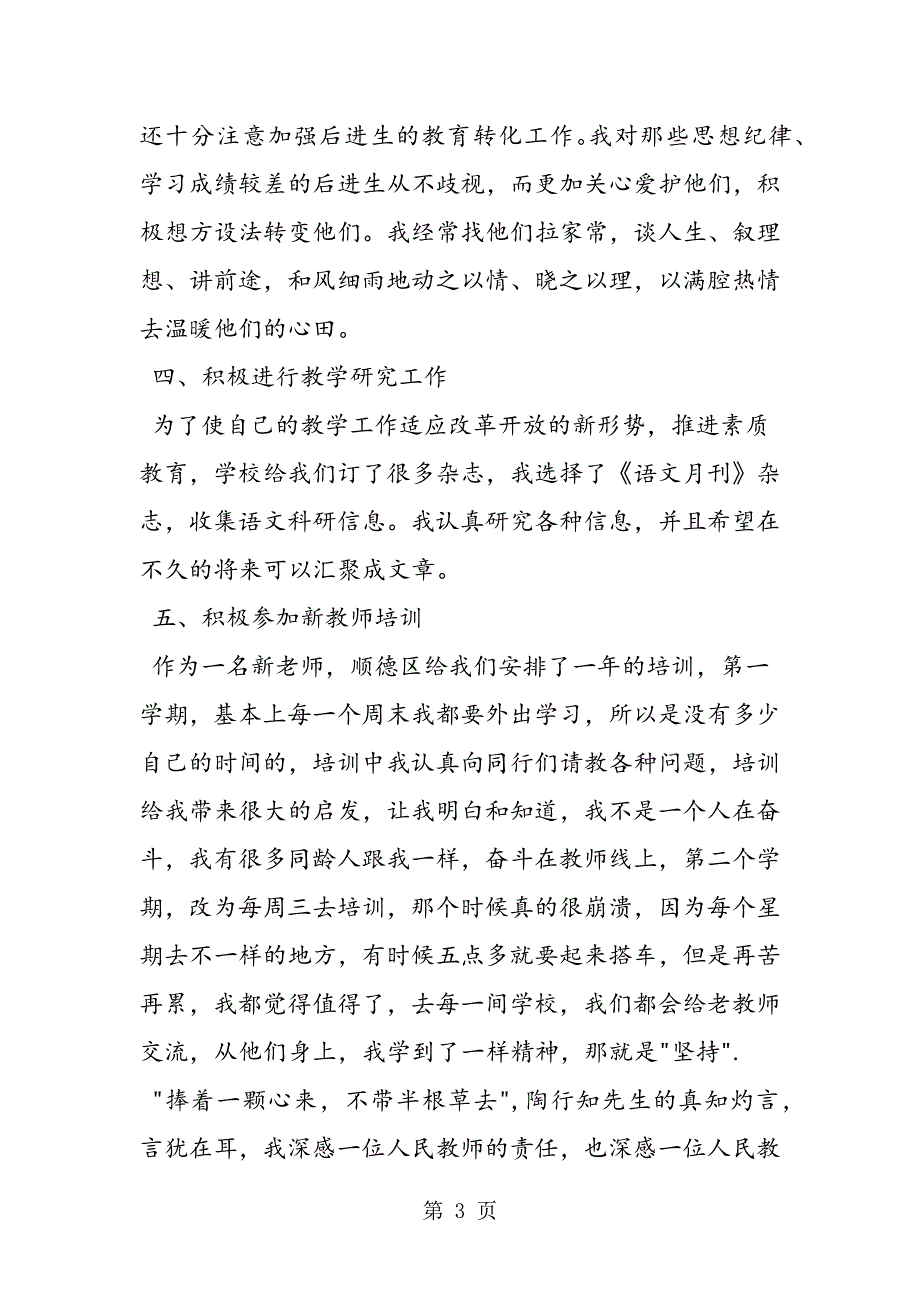 还十分注意加强后进生的教育转化工作。我对那些思想纪律、
学习成绩较差的后进生从不歧视，而更加关心爱护他们，积
极想方设法转变他们。我经常找他们拉家常，谈人生、叙理
想、讲前途，和风细雨地动之以情、晓之以理，以满腔热情
去温暖他们的心田。
四、积极进行教学研究工作
为了使自己的教学工作适应改革开放的新形势，推进素质
教育，学校给我们订了很多杂志，我选择了《语文月刊》杂
志，收集语文科研信息。我认真研究各种信息，并且希望在
不久的将来可以汇聚成文章。
五、积极参加新教师培训
作为一名新老师，顺德区给我们安排了一年的培训，第一
学期，基本上每一个周末我都要外出学习，所以是没有多少
自己的时间的，培训中我认真向同行们请教各种问题，培训
给我带来很大的启发，让我明白和知道，我不是一个人在奋
斗，我有很多同龄人跟我一样，奋斗在教师线上，第二个学
期，改为每周三去培训，那个时候真的很崩溃，因为每个星
期去不一样的地方，有时候五点多就要起来搭车，但是再苦
再累，我都觉得值得了，去每一间学校，我们都会给老教师
交流，从他们身上，我学到了一样精神，那就是"坚持".
"捧着一颗心来，不带半根草去",陶行知先生的真知灼言，
言犹在耳，我深感一位人民教师的责任，也深感一位人民教
第 3 页